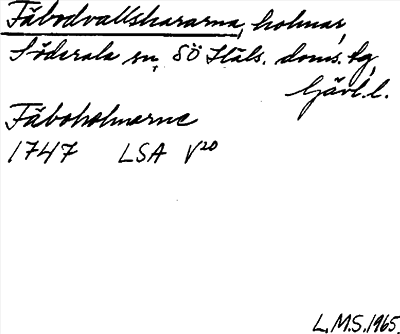 Fäbodvallskararna, holmar,
Söderala sn, SÖ Häls. doms. tg,
Gävl. l.
Fäboholmarne
1747 LSA V20
L.M.S. 1965.